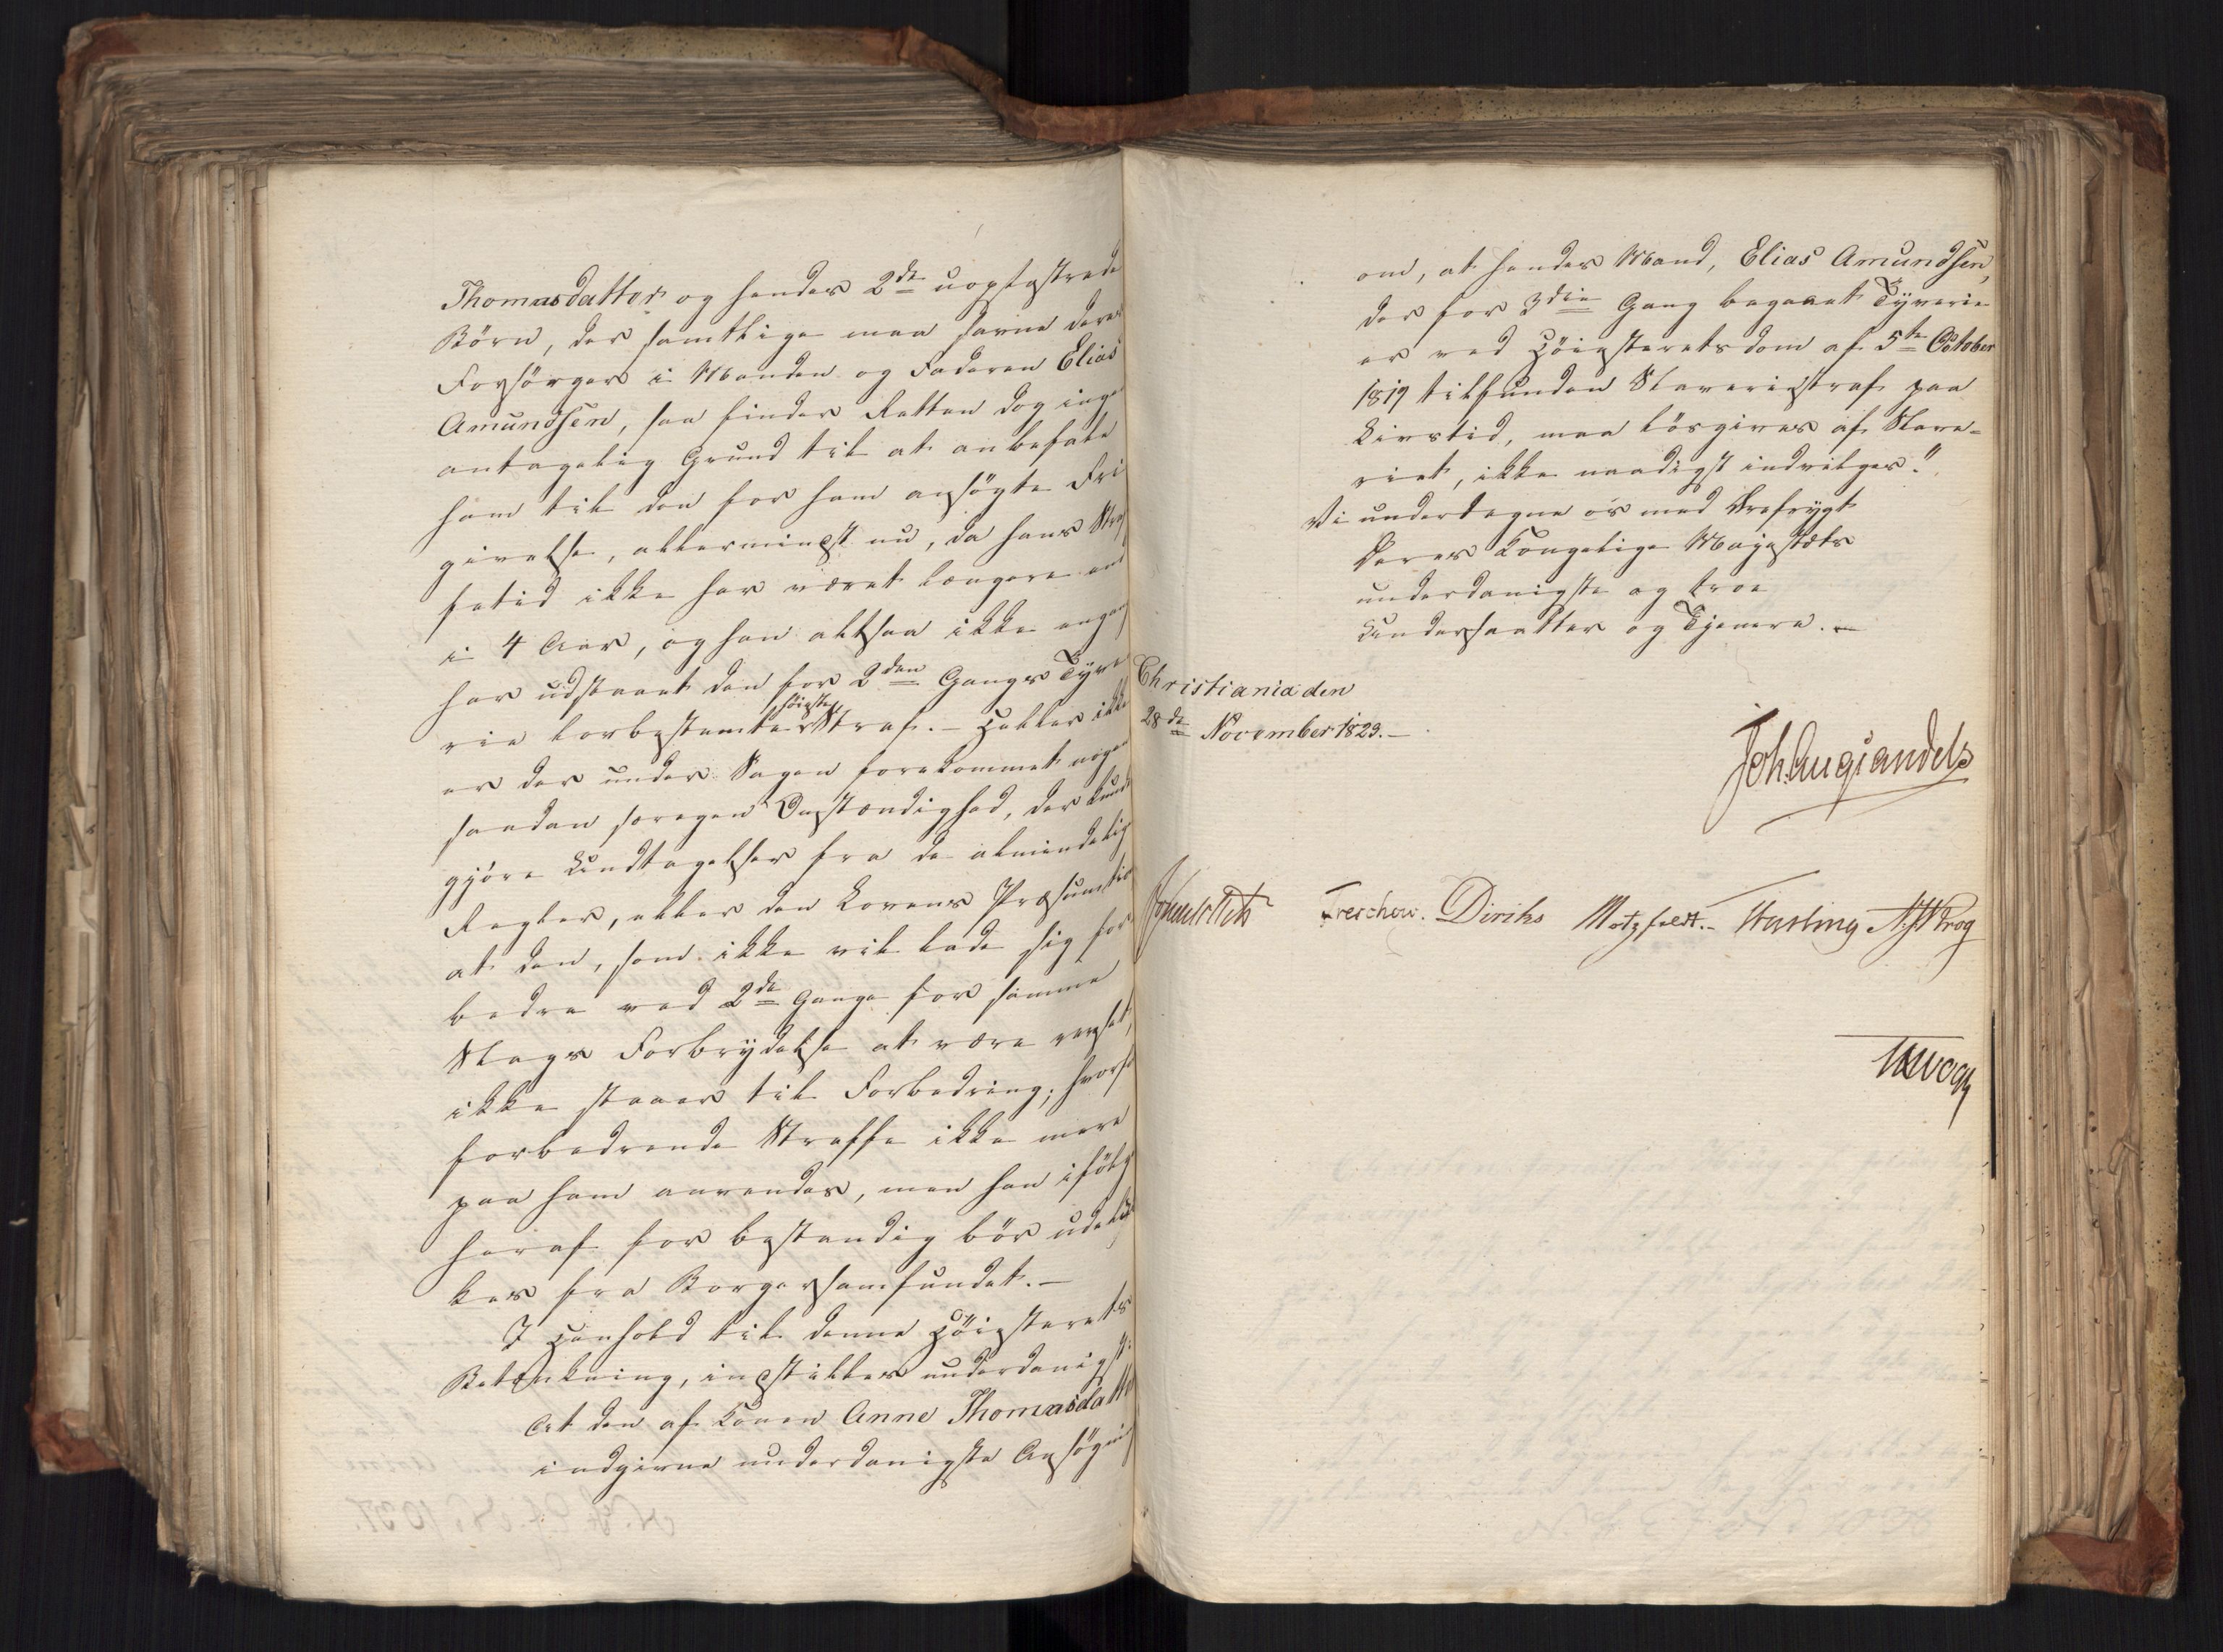 Thomasdatter og hendes 2de uopfostrede
Børn, der samtlige maa savne deres
Forsørger i Manden og Faderen Elias
Amundsen, saa finder Retten dog ingen
antagelig Grund til at anbefale
ham til den for ham ansøgte Fri
givelse, allerminst nu, da hans Straf
fetid ikke har været længere end
i 4 Aar, og han altsaa ikke engang
har udstaaet den for 2den Gangs Tyve
rie lovbestemte høieste Straf. – Heller ikke
er der under Sagen forekommet nogen
saadan særegen Omstændighed, der kunde
gjøre Undtagelser fra de almindelige
Regler, eller den Lovens Præsumtion
at den, som ikke vil lade sig for
bedre ved 2de Gange for samme
Slags Forbrydelse at være revset,
ikke staaer til Forbedring; hvorfor
forbedrende Straffe ikke mere
paa ham anvendes, men han ifølge
heraf for bestandig bør udeluk
kes fra Borgersamfundet. –
I Henhold til denne Høiesterets
Betænkning, indstilles underdanigst:
At den af Konen Anne Thomasdatter
indgivne underdanigste Ansøgning
om, at hendes Mand, Elias Amundsen,
der for 3die Gang begaaet Tyverie
er ved Høiesterets dom af 5te October
1819 tilfunden Slaveriestraf paa
Livstid, maa løsgives af Slave-
riet, ikke naadigst indvilges."
Vi undertegne os med Ærefrygt
Deres Kongelige Majestæts
underdanigste og troe
Undersaatter og Tjenere. –
Christiania den
28de November 1823. –
Joh. Aug Sandels
Treschow. Diriks Motzfeldt. – Fasting N. J. Krog
Vogt